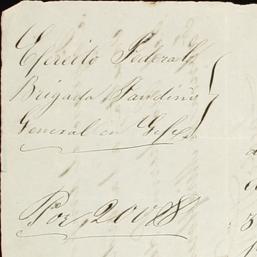 Ejercito Federal
Brigada Sandino
General en Gefe
Por 200 $